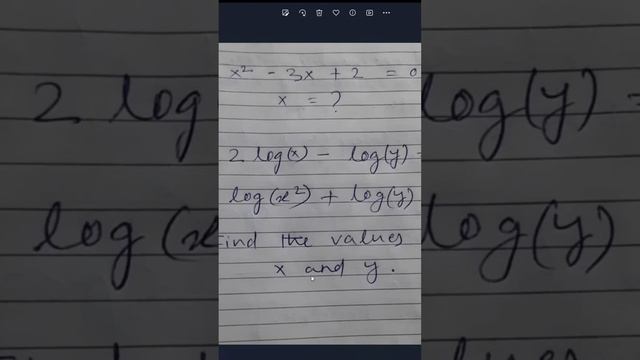 x² - 3x + 2 = 0
x = ?
2 log(x) - log(y)
log(x²) + log(y)
Find the values
x and y.